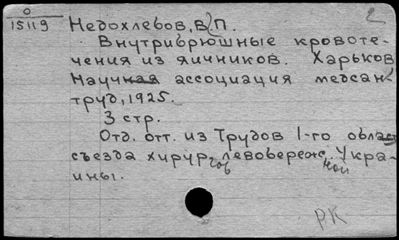 О
15119 Недохлебов, В.П. 2
Внутрибрюшные кровоте-
чения из яичников. Харьков
Научная ассоциация медсан
труд, 1925.
3 стр.
Отд. отт. из Трудов 1-го област
съезда хирургов левобереж.ной Укра-
ины.
РК